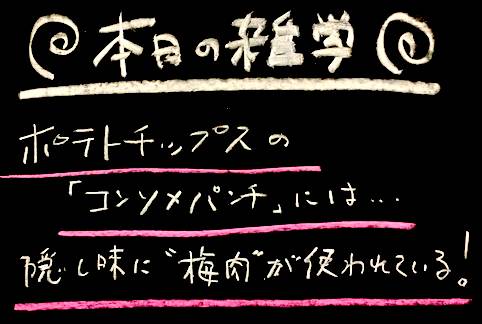 本日の雑学
ポテトチップスの
「コンソメパンチ」には…
隠し味に"梅肉"が使われている!